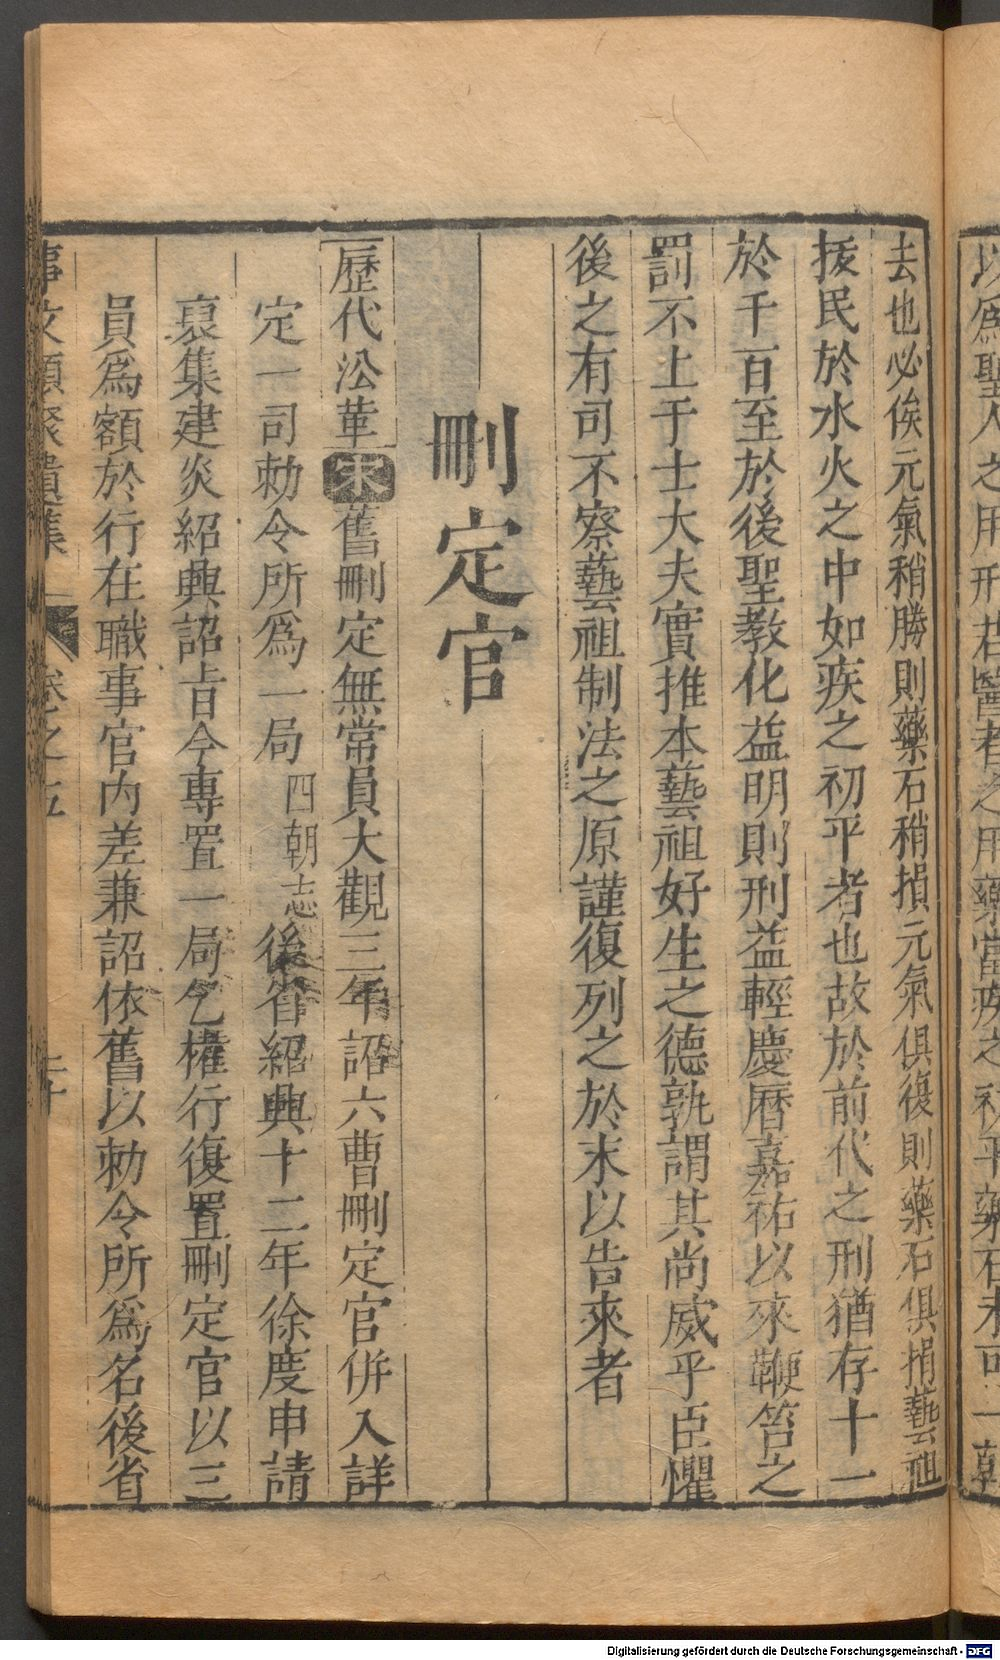 去也必俟元氣稍勝則藥石稍損元氣俱復則藥石俱捐藝祖
拨民於水火之中如疾之初平者也故於前代之刑猶存十一
於千百至於後聖教化益明則刑益輕慶曆嘉祐以來鞭笞之
罰不上于士大夫實推本藝祖好生之德孰謂其尚威乎臣懼
後之有司不察藝祖制法之原謹復列之於末以告來者
刪定官
歷代㳂革宋舊刪定無常員大觀三年詔六曹刪定官併入詳
定一司勅令所爲一局四朝志後省紹興十二年徐度申請
裒集建炎紹興詔旨今專置一局乞權行復置刪定官以三
員爲額於行在職事官内差兼詔依舊以勅令所爲名後省
事文類聚遺集 卷之五
以爲聖人之用刑若醫者之用藥當疾之初平藥石未可一朝
Digitalisierung gefördert durch die Deutsche Forschungsgemeinschaft - DFG